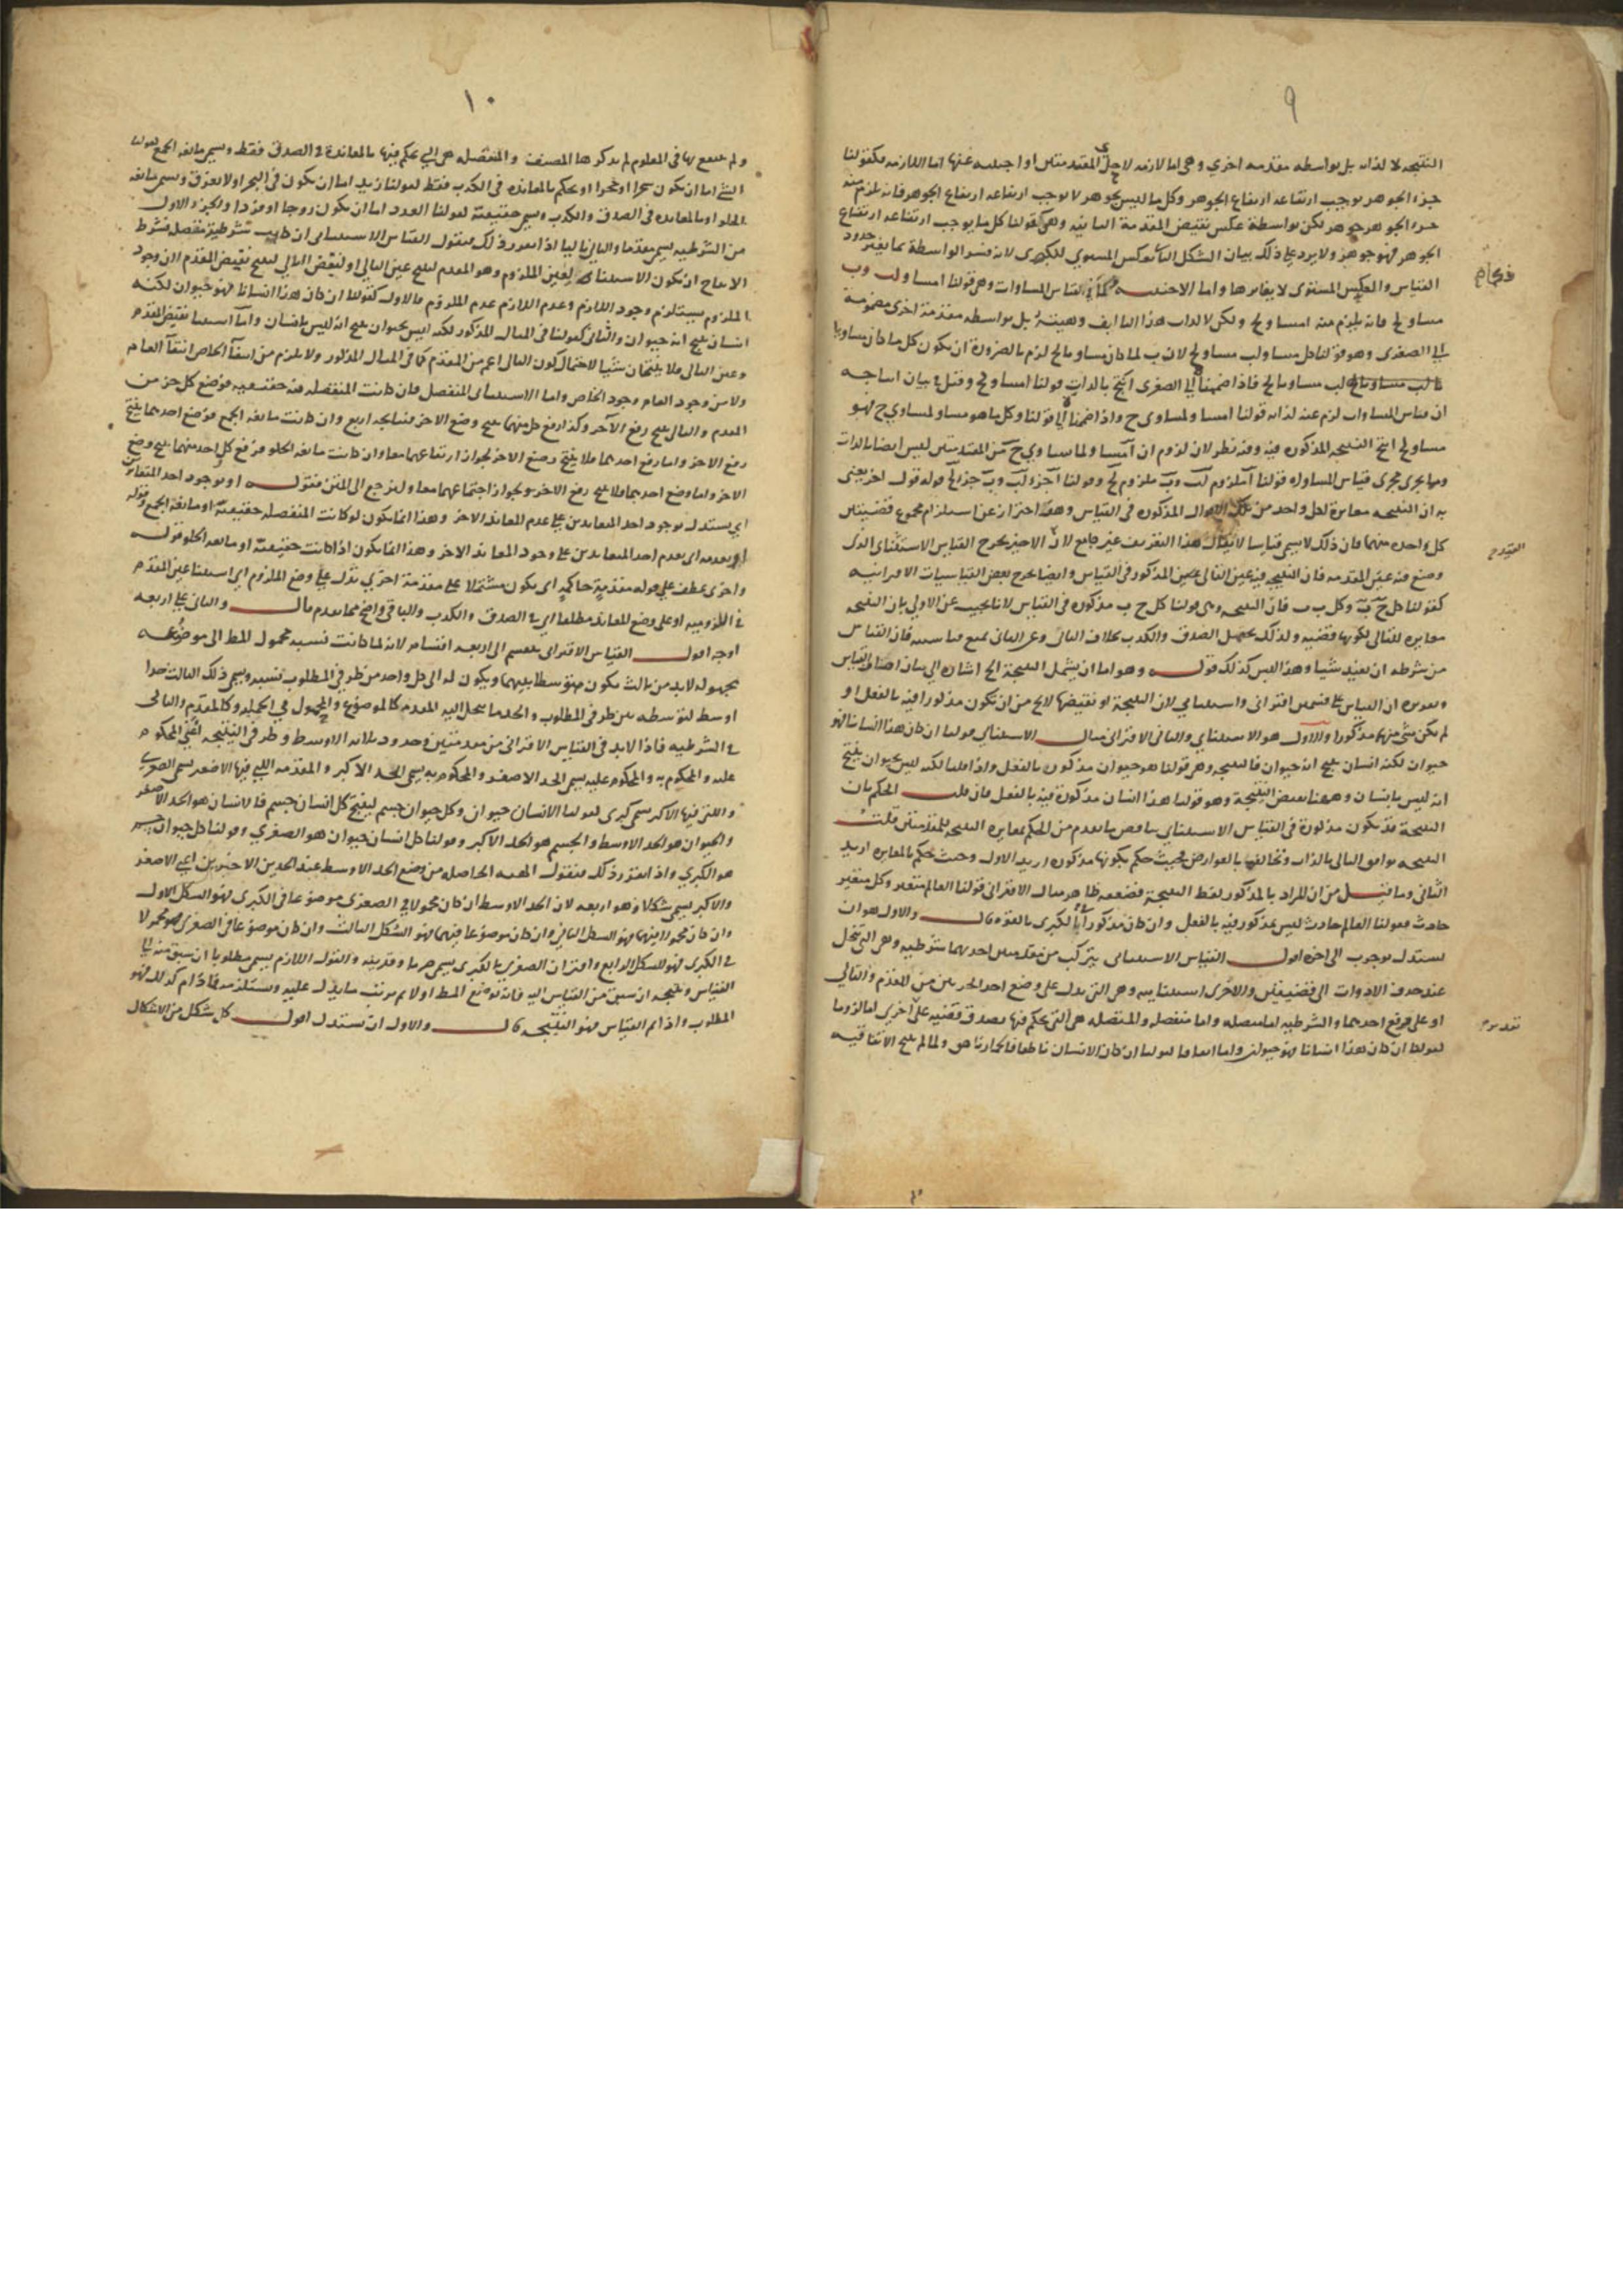 ٩
النتيجه لا لذاته بل بواسطه مقدمه اخري وهي اما لازمه لاحدي المقدمتين او اجنبيه عنها اما اللازمه فكقولنا
جزء الجوهر يوجب ارتفاعه ارتفاع الجوهر وكل ما ليس بجوهر لا يوجب ارتفاعه ارتفاع الجوهر فانه يلزم منه
جزء الجوهر جوهر لكن بواسطة عكس نقيض المقدمة الثانيه وهي كقولنا كل ما يوجب ارتفاعه ارتفاع
الجوهر فهو جوهر ولا يرد على ذلك بيان الشكل الثاني بعكس المستوي للكبرى لانه فسر الواسطة بما يغير حدود
القياس والعكس المستوى لا يغايرها واما الاجنبيه كما في القياس المساوات وهي قولنا ا مساو لب وب
مساو لج فانه يلزم منه ا مساو لج ولكن لا لذات هذا التاليف وهيئته بل بواسطه مقدمة اخرى مضمومة
الى الصغرى وهو قولنا كل مساو لب مساو لج لان ب لما كان مساويا لج لزم بالضرورة ان يكون كل ما كان مساويا
لب مساويا لج فاذا ضمها الى الصغرى انتج بالذات قولنا ا مساو لج وقيل في بيان انتاجه
ان قياس المساوات لزم عنه لذاته قولنا ا مساو لمساوى ج واذا ضمناه الى قولنا وكل ما هو مساو لمساوي ج فهو
مساو لج انتج النتيجه المذكوره فيه وفيه نظر لان لزوم ان ا مساو لمساوي ج من المقدمتين ليس ايضا بالذات
وما يجرى مجرى قياس المساواه قولنا ا ملزوم لب وب ملزوم لج وقولنا ا جزء لب وب جزء لج قوله قول اخر يعنى
به ان النتيجه مغايرة لكل واحد من تلك الاقوال المذكوره فى القياس وهذا احتراز عن استلزام مجموع قضيتين
كل واحده منهما فان ذلك لا يسمى قياسا لا يقال هذا التعريف غير جامع لان الاخير يخرج القياس الاستثنائى الذى
وضع فيه عين المقدمه فان النتيجه فيه عين التالى المذكور فى القياس وايضا يخرج بعض القياسيات الاقترانيه
كقولنا كل ج ب وكل ب ب فان النتيجه وهى قولنا كل ج ب مذكوره فى القياس لانا نجيب عن الاولي بان النتيجه
مغايره للتالى لكونها قضيه ولذلك يحتمل الصدق والكذب بخلاف التالى وعن الثانى بمنع قياسيته فان القياس
من شرطه ان يفيد شيا وهذا ليس كذلك قوله وهو اما ان يشتمل النتيجة الخ اشاره الي بيان اصناف القياس
وتقريره ان القياس على قسمين اقترانى واستثنائي لان النتيجة او نقيضها لا يخ من ان تكون مذكورا فيه بالفعل او
لم يكن شئ منهما مذكورا والاول هو الاستثنائي والثانى الاقترانى مثال الاستثنائي قولنا ان كان هذا انسانا فهو
حيوان لكنه انسان ينتج انه حيوان فالنتيجه وهي قولنا هو حيوان مذكور بالفعل واذا قلنا لكنه ليس بحيوان ينتج
انه ليس بانسان وههنا نقيض النتيجة وهو قولنا هذا انسان مذكورة فيه بالفعل فان قلت الحكم بان
النتيجة قد تكون مذكورة فى القياس الاستثنائي يناقض ما تقدم من الحكم بمغايره النتيجه للمقدمتين قلت
النتيجه توافق التالى بالذات وتخالفها بالعوارض فحيث حكم بكونها مذكوره اريد الاول وحيث حكم بالمغايره اريد
الثانى وما قيل من ان المراد بالمذكور لفظ النتيجة فضعفه ظاهر مثال الاقترانى قولنا العالم متغير وكل متغير
حادث فقولنا العالم حادث ليس مذكور فيه بالفعل وان كان مذكورا بالقوه قال والاول هو ان
يستدل بوجوب الى اخره اقول القياس الاستثنائى يتركب من مقدمتين احديهما شرطيه وهى التى تنحل
عند حذف الادوات الى قضيتين والاخرى استثنائيه وهى التى تدل على وضع احد الجزءين من المقدم والتالي
او على رفع احدهما والشرطيه اما متصله واما منفصله والمتصله هى التى يحكم فيها بصدق قضيه على اخري اما لزوما
كقولنا ان كان هذا انسانا فهو حيوان واما اتفاقا كقولنا ان كان الانسان ناطقا فالحمار ناهق ولما لم ينتج الاتفاقيه
١٠
ولم ينتفع بها فى العلوم لم يذكرها المصنف والمنفصله هى التي يحكم فيها بالمعاندة فى الصدق فقط وتسمى مانعه الجمع كقولنا
الشئ اما ان يكون شجرا او حجرا او يحكم بالمعانده فى الكذب فقط كقولنا زيد اما ان يكون فى البحر او لا يغرق وتسمى مانعه
الخلو او بالمعانده فى الصدق والكذب وتسمى حقيقية كقولنا العدد اما ان يكون زوجا او فردا والجزء الاول
من الشرطيه يسمى مقدما والثانى تاليا اذا تقرر ذلك فنقول القياس الاستثنائى ان كانت شرطيته متصله فشرط
الانتاج ان يكون الاستثناء لعين الملزوم وهو المقدم لينتج عين التالي او لنقيض التالي لينتج نقيض المقدم اذ وجود
الملزوم يستلزم وجود اللازم وعدم اللازم عدم الملزوم فالاول كقولنا ان كان هذا انسانا فهو حيوان لكنه
انسان ينتج انه حيوان والثانى كقولنا فى المثال المذكور لكنه ليس بحيوان ينتج انه ليس بانسان واما استثنا نقيض المقدم
وعين التالى فلا ينتجان شيا لاحتمال كون التالى اعم من المقدم كما فى المثال المذكور ولا يلزم من انتفاء الخاص انتفاء العام
ولا من وجود العام وجود الخاص واما الاستثنائى المنفصل فان كانت المنفصله فيه حقيقيه فوضع كل جزء من
المقدم والتالى ينتج رفع الآخر وكذا رفع كل منهما ينتج وضع الاخر فنتايجه اربع وان كانت مانعه الجمع فوضع احدهما ينتج
رفع الاخر واما رفع احدهما فلا ينتج وضع الاخر لجواز ارتفاعهما معا وان كانت مانعه الخلو فرفع كل واحد منهما ينتج وضع
الاخر واما وضع احدهما فلا ينتج رفع الاخر لجواز اجتماعهما معا ولنرجع الى المتن فنقول او بوجود احد المتعاندين
اي يستدل بوجود احد المتعاندين على عدم المعاند الاخر وهذا انما يكون لو كانت المنفصله حقيقية او مانعه الجمع وقوله
او بعدمه اى بعدم احد المتعاندين على وجود المعاند الاخر وهذا انما يكون اذا كانت حقيقية او مانعه الخلو قوله
واخرى عطف علي قوله مقدمة حاكمة اى يكون مشتملا على مقدمة اخري تدل على وضع الملزوم اي استثنا عين المقدم
فى اللزوميه او على وضع المعاند مطلقا اي فى الصدق والكذب والباقى واضح مما تقدم قال والثانى على اربعه
اوجه اقول القياس الاقترانى ينقسم الى اربعه اقسام لانه لما كانت نسبه محمول المط الى موضوعه
مجهوله لا بد من ثالث يكون متوسطا بينهما ويكون له الى كل واحد من طرفى المطلوب نسبه ويسمى ذلك الثالث حدا
اوسط لتوسطه بين طرفى المطلوب والحد ما ينحل اليه المقدمه كالموضوع والمحمول في الحمليه وكالمقدم والتالى
فى الشرطيه فاذا لا بد فى القياس الاقترانى من مقدمتين وحدود ثلاثه الاوسط وطرفى النتيجه اعنى المحكوم
عليه والمحكوم به والمحكوم عليه يسمى الحد الاصغر والمحكوم به يسمى الحد الاكبر والمقدمه التي فيها الاصغر تسمى الصغري
والتى فيها الاكبر تسمى كبرى كقولنا الانسان حيوان وكل حيوان جسم لينتج كل انسان جسم فالانسان هو الحد الاصغر
والحيوان هو الحد الاوسط والجسم هو الحد الاكبر وقولنا كل انسان حيوان هو الصغري وقولنا كل حيوان جسم
هو الكبري واذا تقرر ذلك فنقول الهيئه الحاصله من وضع الحد الاوسط عند الحدين الاخيرين اعني الاصغر
والاكبر يسمى شكلا وهو اربعه لان الحد الاوسط ان كان محمولا في الصغرى موضوعا فى الكبرى فهو الشكل الاول
وان كان محمولا فيهما فهو الشكل الثاني وان كان موضوعا فيهما فهو الشكل الثالث وان كان موضوعا فى الصغرى محمولا
فى الكبرى فهو الشكل الرابع واقتران الصغري بالكبرى يسمى ضربا وقرينه والقول اللازم يسمى مطلوبا ان سبق منه الى
القياس ونتيجه ان سبق من القياس اليه
المطلوب واذا تم القياس فهو النتيجه قال والاول ان يستدل اقول كل شكل من الاشكال